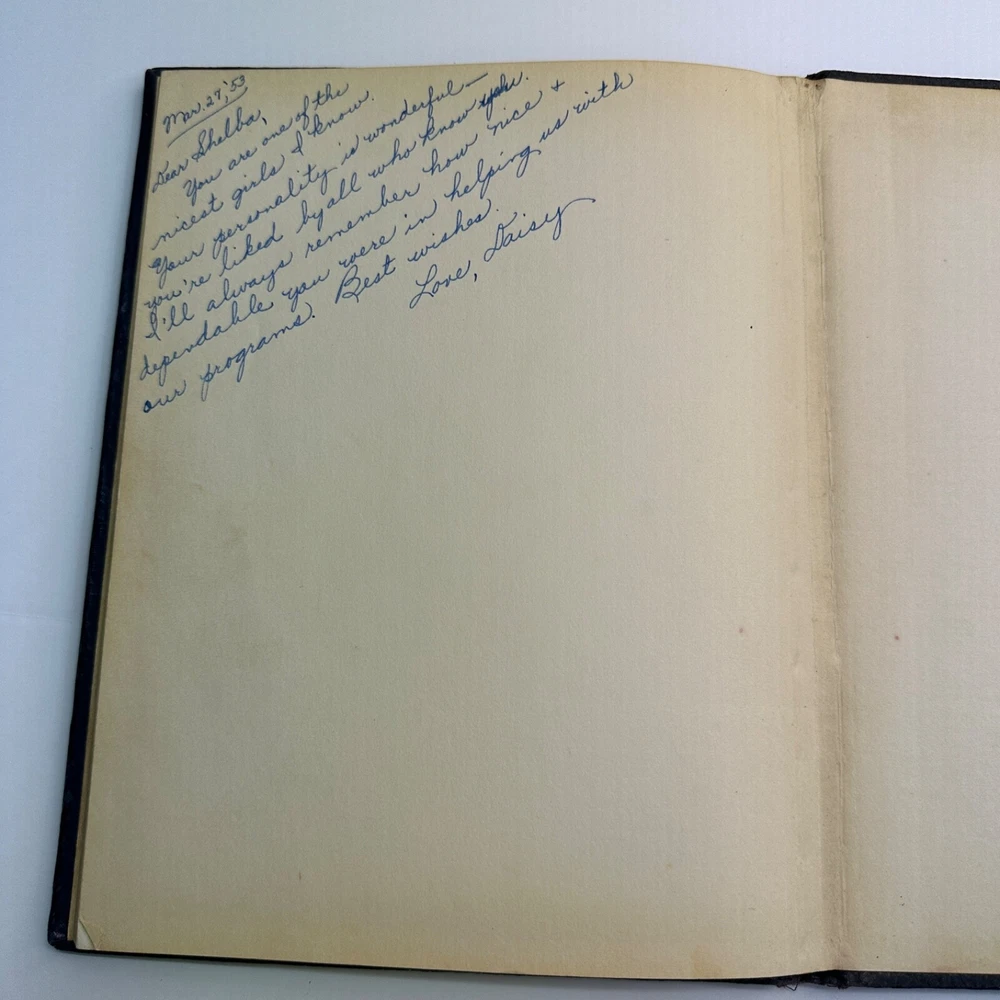 Mar. 27, '53
Dear Shelba,
You are one of the
nicest girls I know.
Your personality is wonderful—
you're liked by all who know you.
I'll always remember how nice +
dependable you were in helping us with
our programs. Best wishes.
Love, Daisy